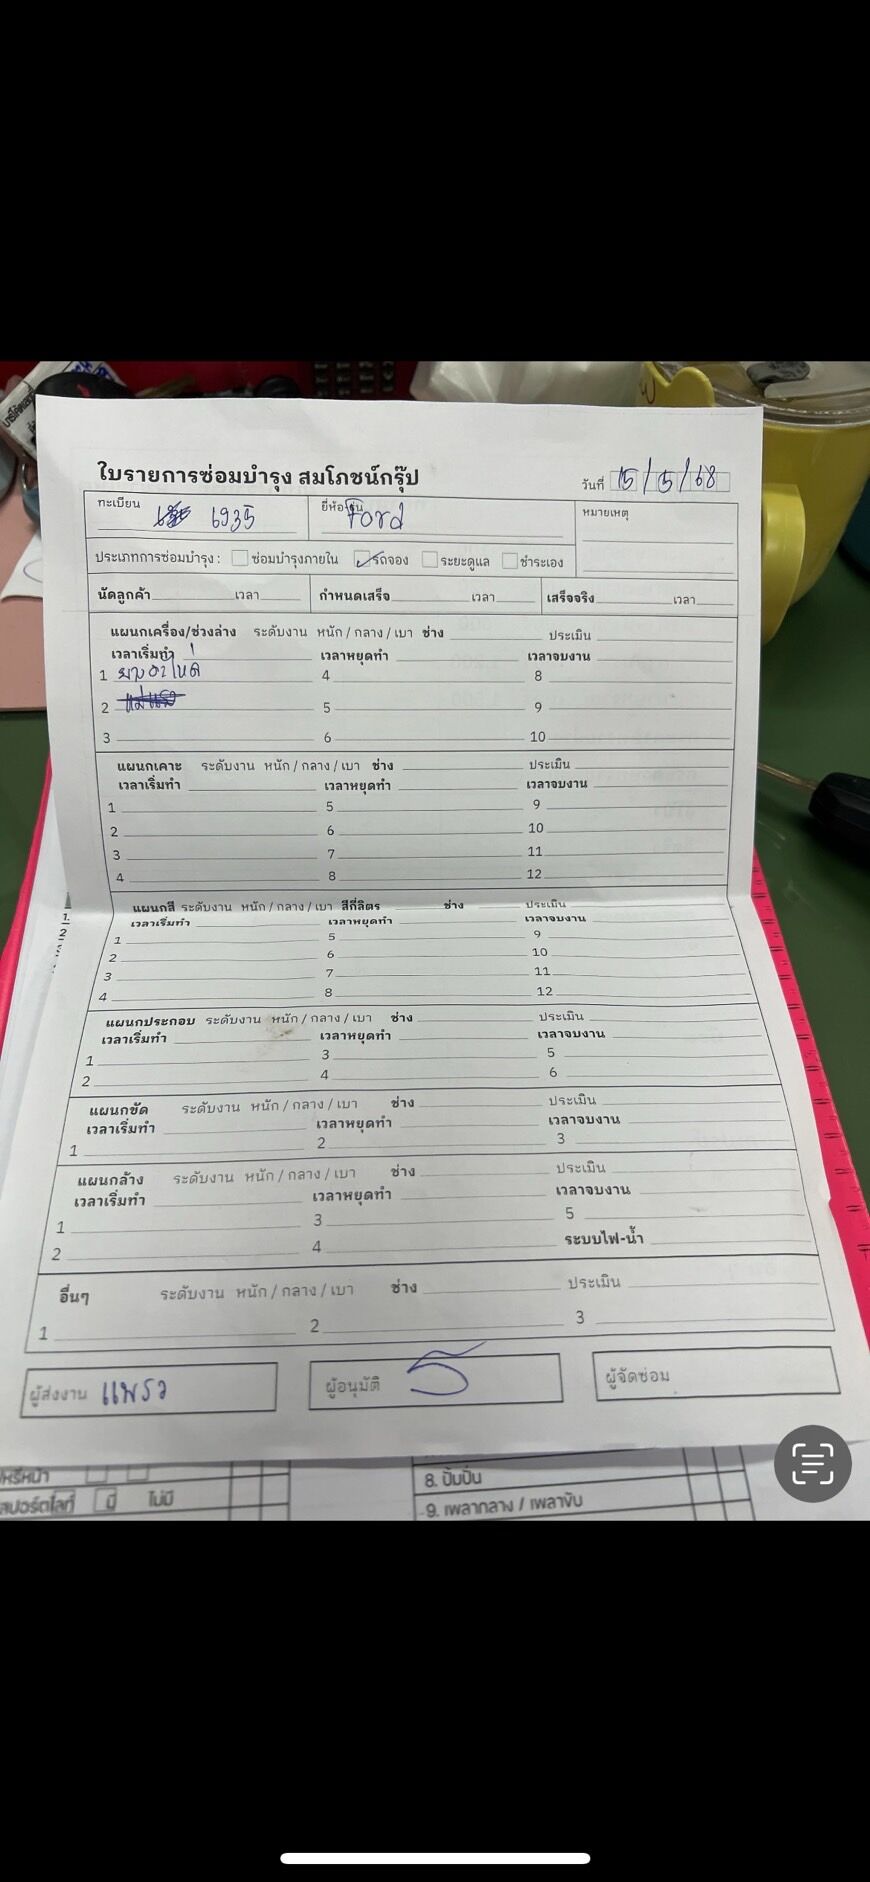 ใบรายการซ่อมบำรุง สมโภชน์กรุ๊ป
วันที่ 15/5/68
ทะเบียน 6935 ยี่ห้อ/รุ่น Ford หมายเหตุ
ประเภทการซ่อมบำรุง : ซ่อมบำรุงภายใน รถจอง ระยะดูแล ชำระเอง
นัดลูกค้า เวลา กำหนดเสร็จ เวลา เสร็จจริง เวลา
แผนกเครื่อง/ช่วงล่าง ระดับงาน หนัก / กลาง / เบา ช่าง ประเมิน
เวลาเริ่มทำ เวลาหยุดทำ เวลาจบงาน
1 4 8
2 5 9
3 6 10
แผนกเคาะ ระดับงาน หนัก / กลาง / เบา ช่าง ประเมิน
เวลาเริ่มทำ เวลาหยุดทำ เวลาจบงาน
1 5 9
2 6 10
3 7 11
4 8 12
แผนกสี ระดับงาน หนัก / กลาง / เบา สีกี่ลิตร ช่าง ประเมิน
เวลาเริ่มทำ เวลาหยุดทำ เวลาจบงาน
1 5 9
2 6 10
3 7 11
4 8 12
แผนกประกอบ ระดับงาน หนัก / กลาง / เบา ช่าง ประเมิน
เวลาเริ่มทำ เวลาหยุดทำ เวลาจบงาน
1 3 5
2 4 6
แผนกขัด ระดับงาน หนัก / กลาง / เบา ช่าง ประเมิน
เวลาเริ่มทำ เวลาหยุดทำ เวลาจบงาน
1 2 3
แผนกล้าง ระดับงาน หนัก / กลาง / เบา ช่าง ประเมิน
เวลาเริ่มทำ เวลาหยุดทำ เวลาจบงาน
1 3 5
2 4 ระบบไฟ-น้ำ
อื่นๆ ระดับงาน หนัก / กลาง / เบา ช่าง ประเมิน
1 2 3
ผู้ส่งงาน แพรว ผู้อนุมัติ ผู้จัดซ่อม
8. ปั้มปั่น
สปอร์ตไลท์ มี ไม่มี
9. เพลากลาง / เพลาขับ